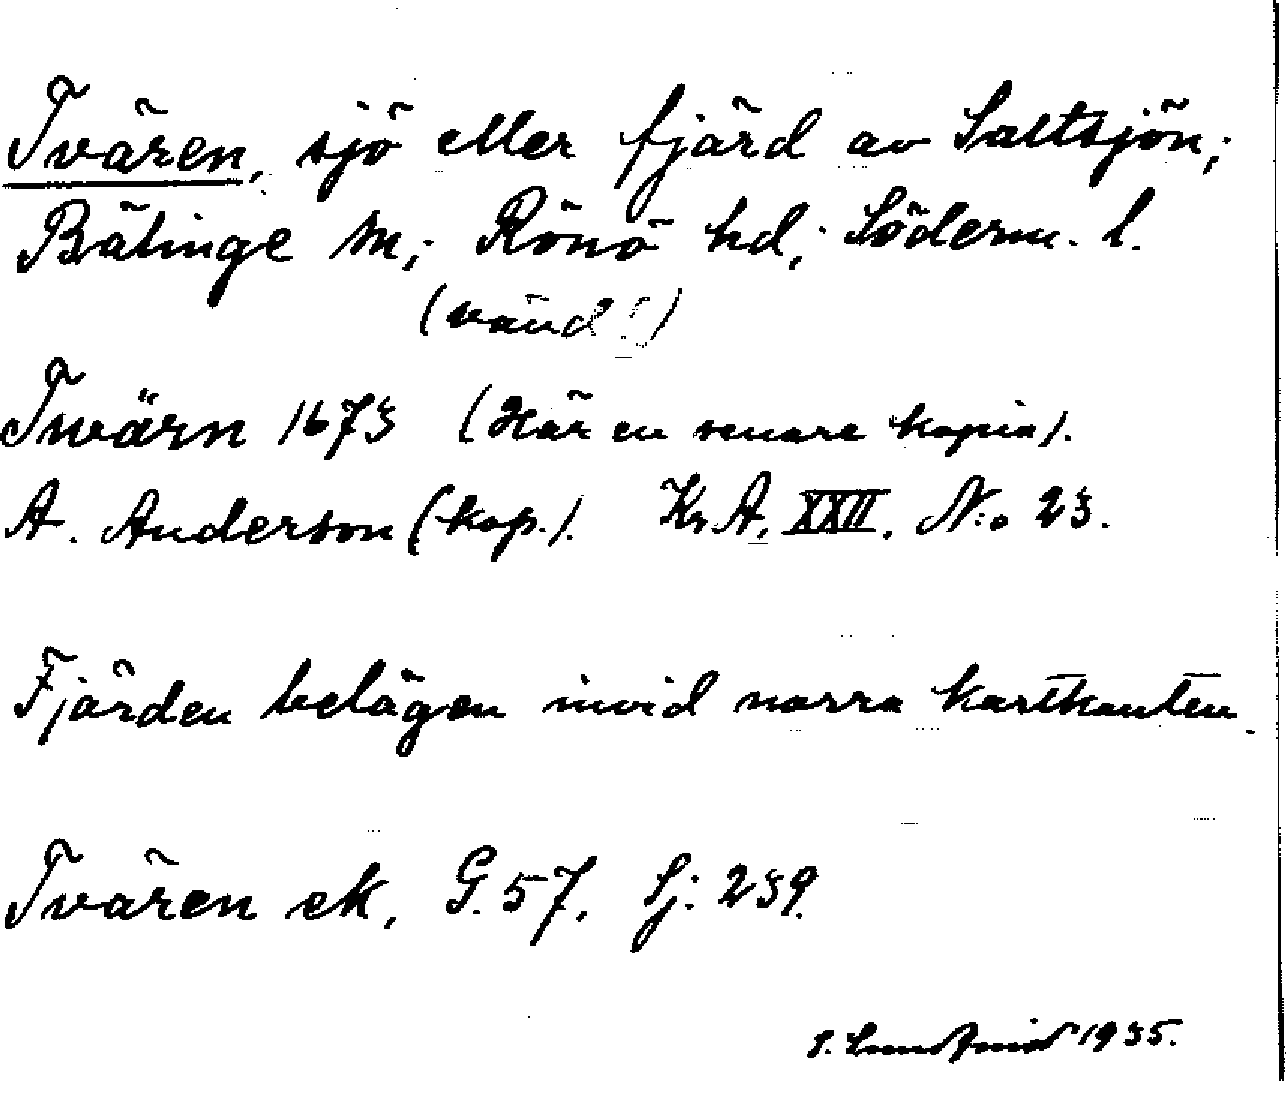 Tvären, sjö eller fjärd av Saltsjön;
Bälinge sn; Rönö hd; Söderm. l.
(vänd!)
Twärn 1673 (Här en senare kopia).
A. Anderson (kop.). Kr. A. XXII. N:o 23.
Fjärden belägen invid norra kartkanten.
Tvären ek. G. 57. Sj: 239.
S. Lundqvist 1935.